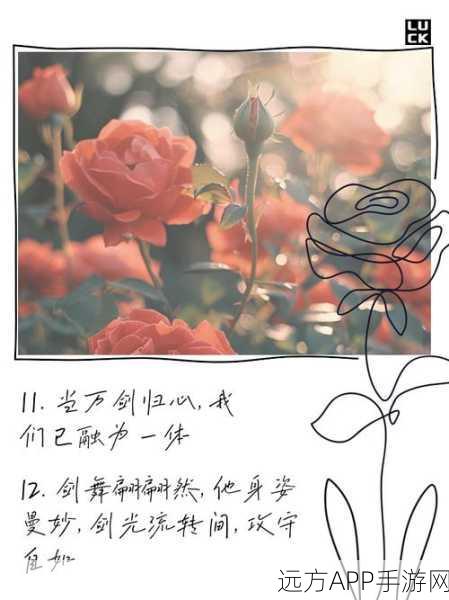 LU
CK
11. 当万剑归心, 我
们已融为一体
12. 剑舞翩翩然, 他身姿
曼妙, 剑光流转间, 攻守
自如
远方APP手游网